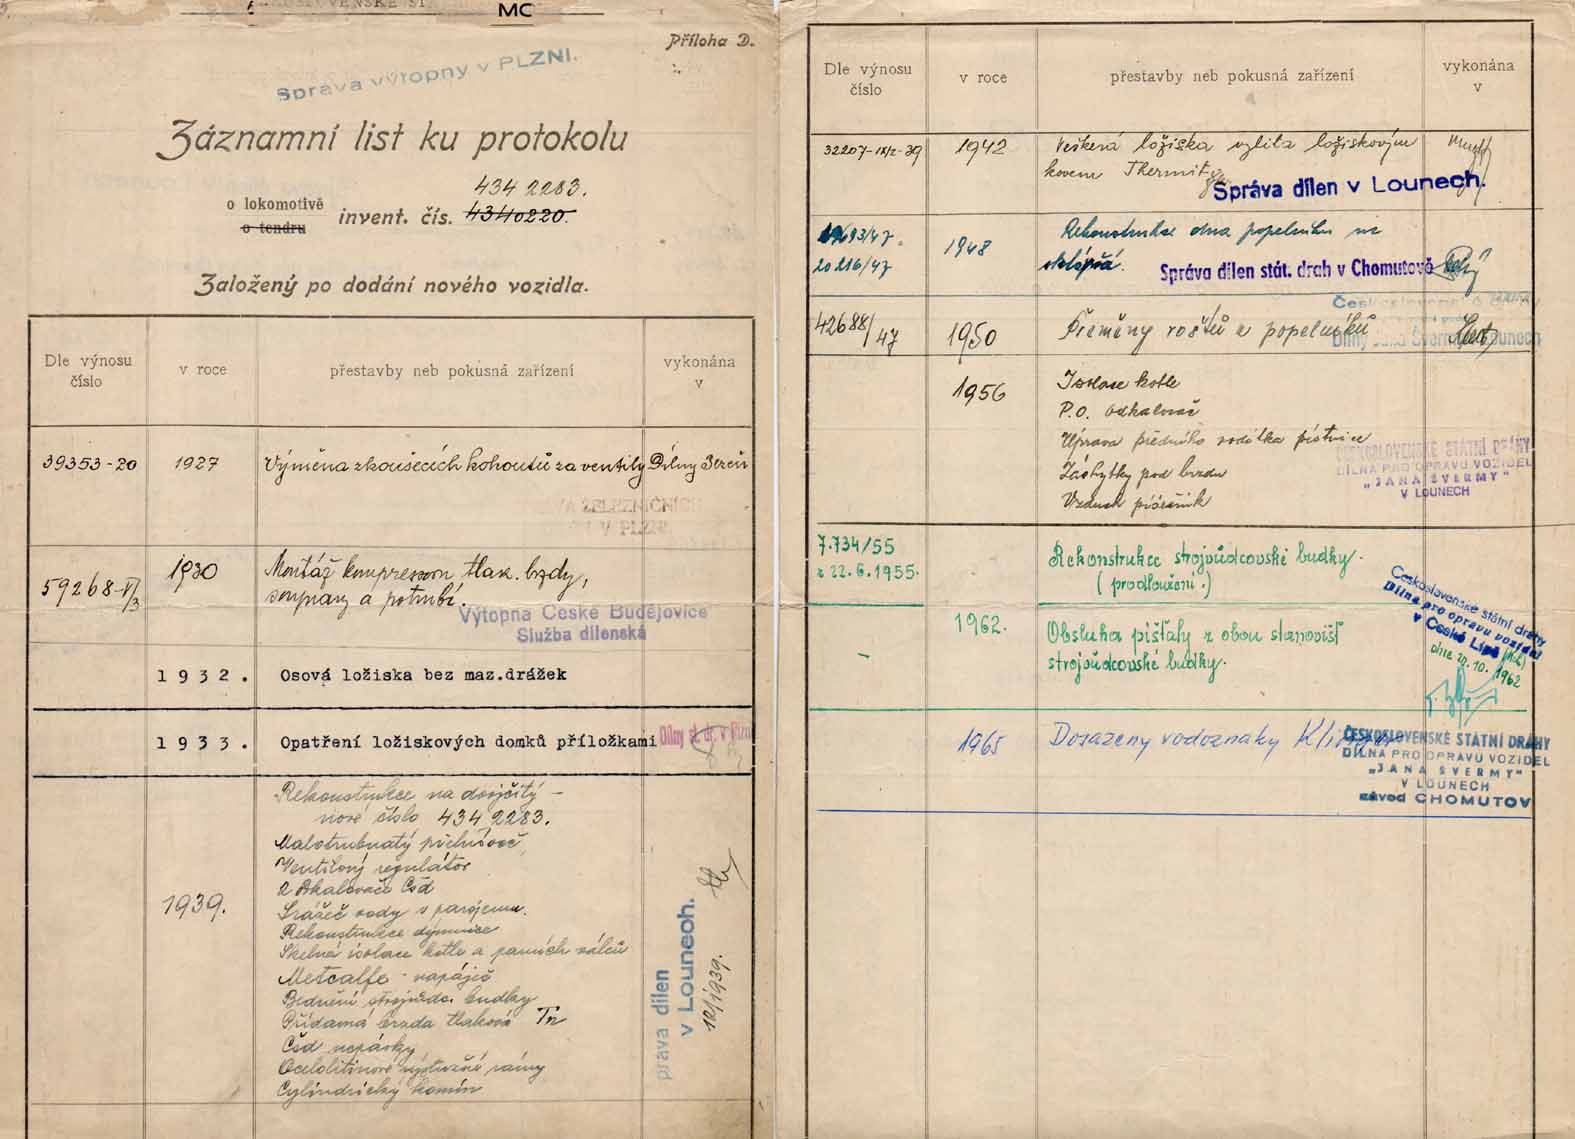 MC
Příloha D.
Správa výtopny v PLZNI.
Záznamní list ku protokolu
434 2283.
o lokomotivě
o tendru
invent. čís. 4340220.
Založený po dodání nového vozidla.
Dle výnosu číslo
v roce
přestavby neb pokusná zařízení
vykonána v
39353-20 1927 Výměna zkoušecích kohoutů za ventily Dílny
ŽELEZNIČNÍCH
V PLZNI
59268-VI/3 1930 Montáž kompresoru, tlak. brzdy,
soupravy a potrubí.
Výtopna České Budějovice
Služba dílenská
1932. Osová ložiska bez maz.drážek
1933. Opatření ložiskových domků příložkami Dílny st. dr. v Plzni
1939.
Rekonstrukce na dvojčitý -
nové číslo 434 2283.
Malotrubnatý přehřívač
Ventilový regulátor
2 Odkalovače Čsd
Srážeč vody v parojemu.
Rekonstrukce dýmnice
Skelná isolace kotle a parních válců
Metcalfe - napáječ
Bednění strojvůdc. budky
Přídavná brzda tlaková
Čsd
Ocelolitinové rámy
Cylindrický komín
práva dílen
v Lounech.
12/1939.
Dle výnosu číslo
v roce
přestavby neb pokusná zařízení
vykonána v
32207-IX/2-39 1942 Veškerá ložiska vylita ložiskovým
kovem Thermit
Správa dílen v Lounech.
19693/47.
20216/47 1948 Rekonstrukce dna popelníku na
sklápěcí.
Správa dílen stát. drah v Chomutově
42688/47 1950 Přeměny roštů a popelníků
Dílny Jana Švermy Lounech
1956 Isolace kotle
P.O. Odkalovač
Úprava předního vodítka pístnice
Záchytky pod brzdu
Vzduch. pískečník
ČESKOSLOVENSKÉ STÁTNÍ DRÁHY
DÍLNA PRO OPRAVU VOZIDEL
„JANA ŠVERMY"
V LOUNECH
7.734/55
z 22.6.1955.
Rekonstrukce strojvůdcovské budky.
(prodloužení.)
1962. Obsluha píšťaly z obou stanovišť
strojvůdcovské budky.
Československé státní dráhy
Dílna pro opravu vozidel
v České Lípě
dne 20.10.1962
1965 Dosazeny vodoznaky Klinger
ČESKOSLOVENSKÉ STÁTNÍ DRÁHY
DÍLNA PRO OPRAVU VOZIDEL
„JANA ŠVERMY"
V LOUNECH
závod CHOMUTOV